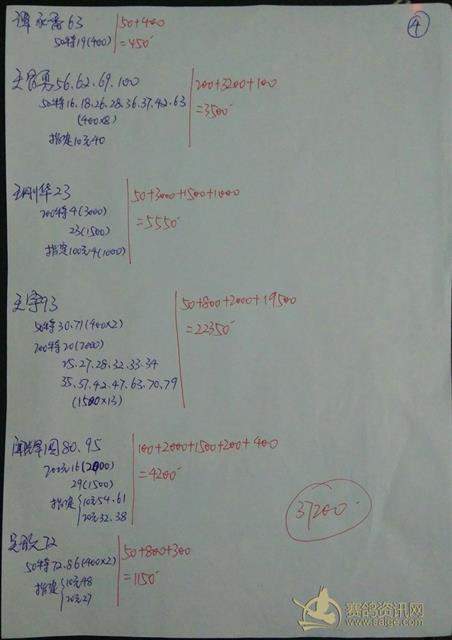 ④
谭永香63 50+400
50特19(400) =450
王贸勇56.62.69.100 200+3200+100
50特16.18.26.28.36.37.42.63 =3500
(400×8)
指定10元40
王刚华23 50+3000+1500+1000
200特4(3000) =5550
23(1500)
指定100元4(1000)
王宇93 50+800+2000+19500
50特30.71(400×2) =22350
200特20(2000)
25.27.28.32.33.34
35.37.42.47.63.70.79
(1500×13)
圆80.95 100+2000+1500+200+400
200元16(2000) =4200
29(1500)
指定 10元54.61
20元32.38
37200
72 50+800+300
50特72.86(400×2) =1150
指定 10元48
20元27
赛鸽资讯网
www.saige.com